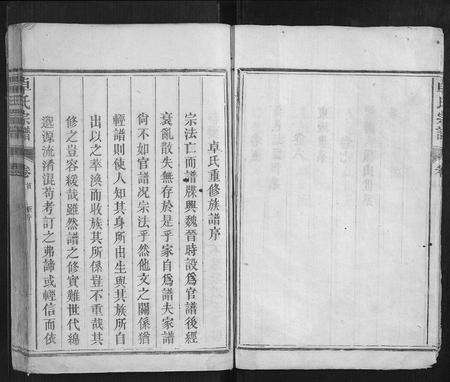 卓氏重修族譜序
宗法亡而譜牒興魏晉時設爲官譜後經
衰亂散失無存於是乎家自爲譜夫家譜
尙不如官譜况宗法乎然他文之關係猶
輕譜則使人知其身所出生與其族所自
出以之萃渙而收族其所係豈不重哉其
修之豈容緩哉雖然譜之修實難世代緜
遐源流淆混苟考訂之弗諦或輕信而依
卓氏宗譜
卷
卓氏宗譜
卷